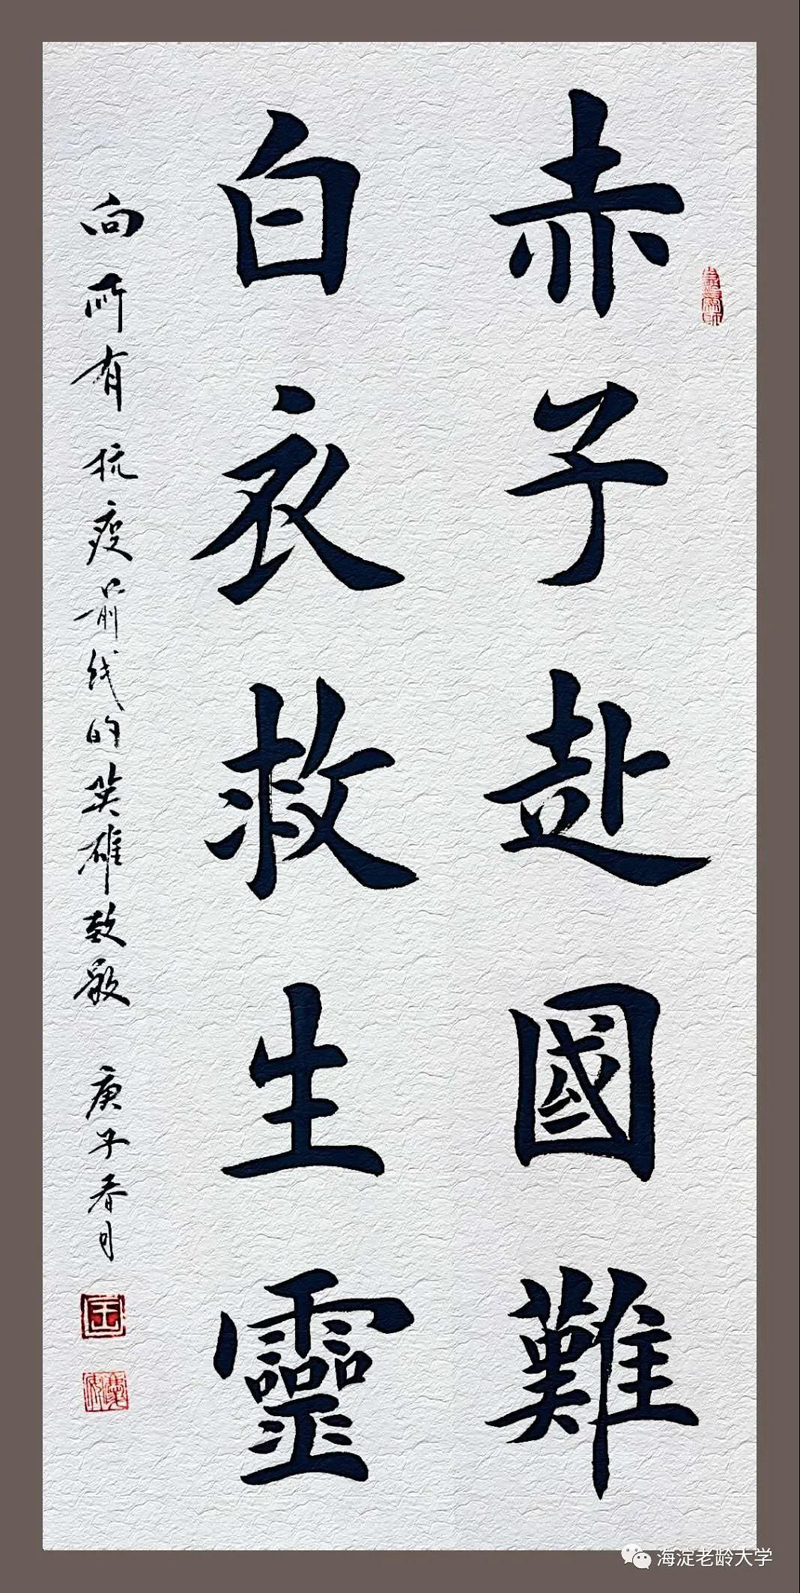 赤子赴國難
白衣救生靈
向所有抗疫前线的英雄致敬 庚子春月
海淀老龄大学